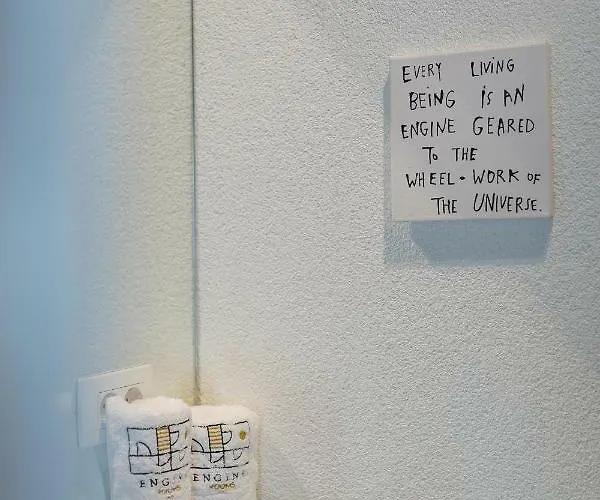 EVERY LIVING
BEING IS AN
ENGINE GEARED
To THE
WHEEL-WORK OF
THE UNIVERSE.
ENGINE
ROOMS
ENGIN
ROOMS